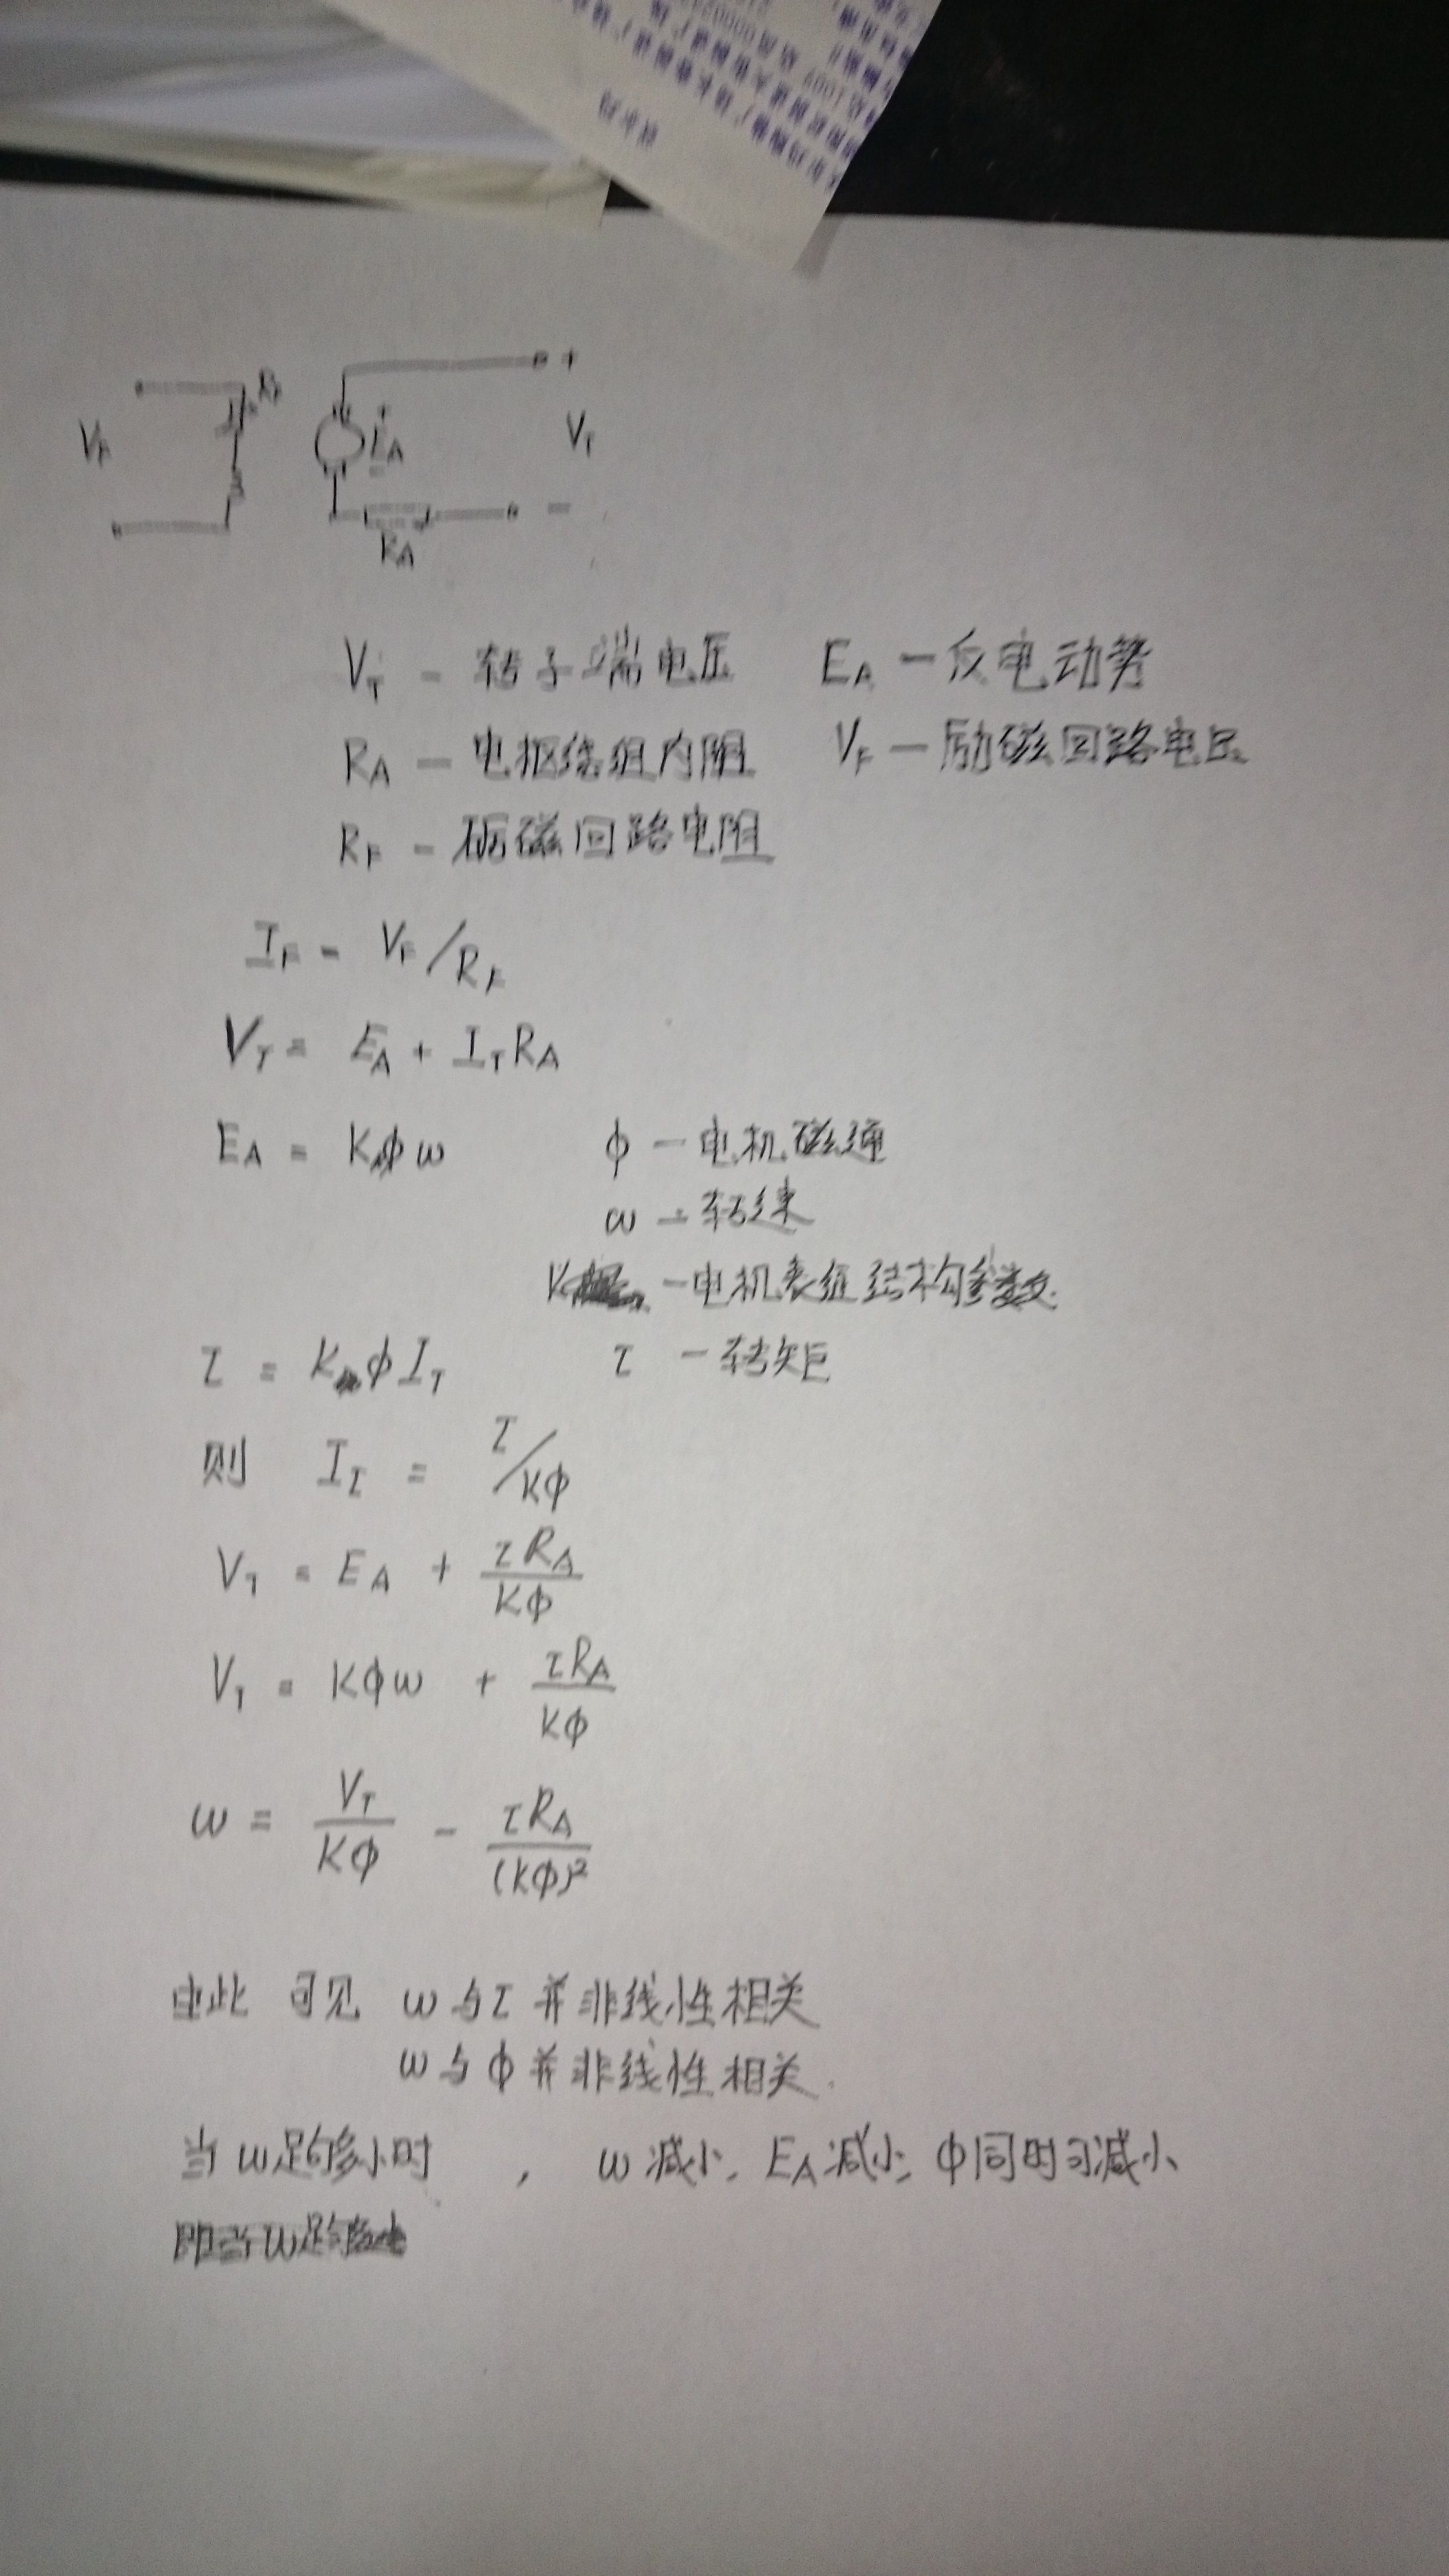 V_F R_F E_A + V_T
R_A −
V_T - 转子端电压 E_A - 反电动势
R_A - 电枢绕组内阻 V_F - 励磁回路电压
R_F - 励磁回路电阻
I_F = V_F/R_F
V_T = E_A + I_T R_A
E_A = Kϕω ϕ - 电机磁通
ω - 转速
K - 电机绕组结构参数
τ = KϕI_T τ - 转矩
则 I_T = τ/Kϕ
V_T = E_A + τR_A/Kϕ
V_T = Kϕω + τR_A/Kϕ
ω = V_T/Kϕ - τR_A/(Kϕ)²
由此可见 ω与τ并非线性相关
ω与ϕ并非线性相关.
当ω足够小时 , ω减小, E_A减小, ϕ同时可减小